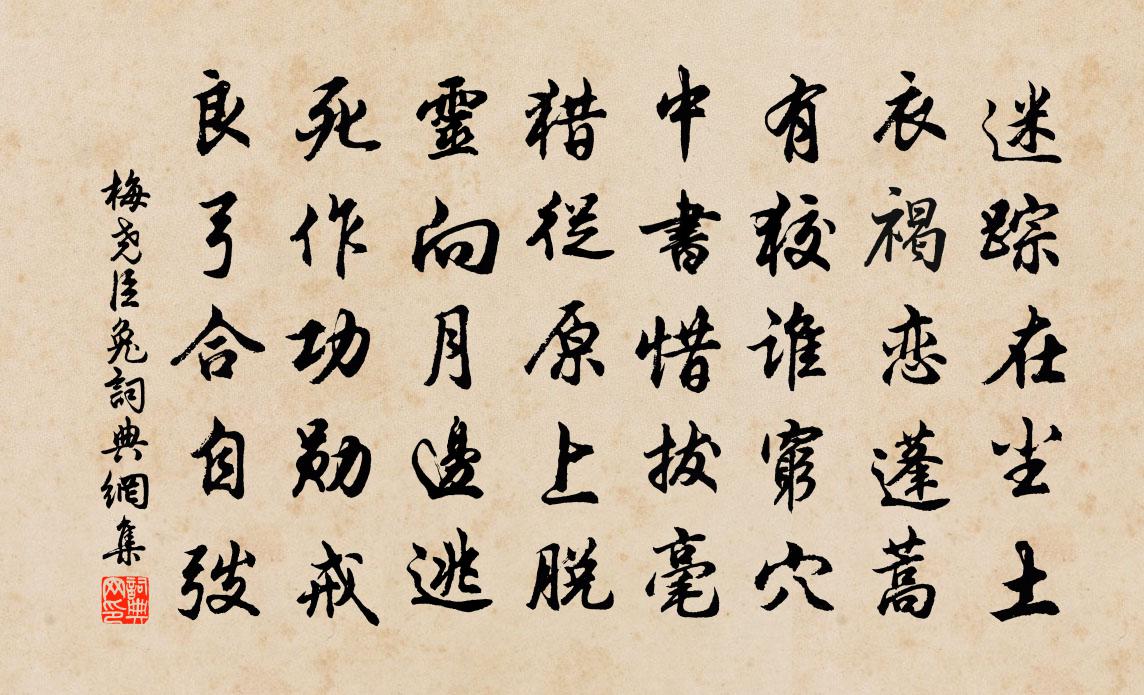 迷踪在尘土
衣褐恋蓬蒿
有狡谁穷穴
中書惜拔毫
猎從原上脱
靈向月邊逃
死作功勋戒
良弓合自弢
梅尧臣兔詞典網集
詞典网印